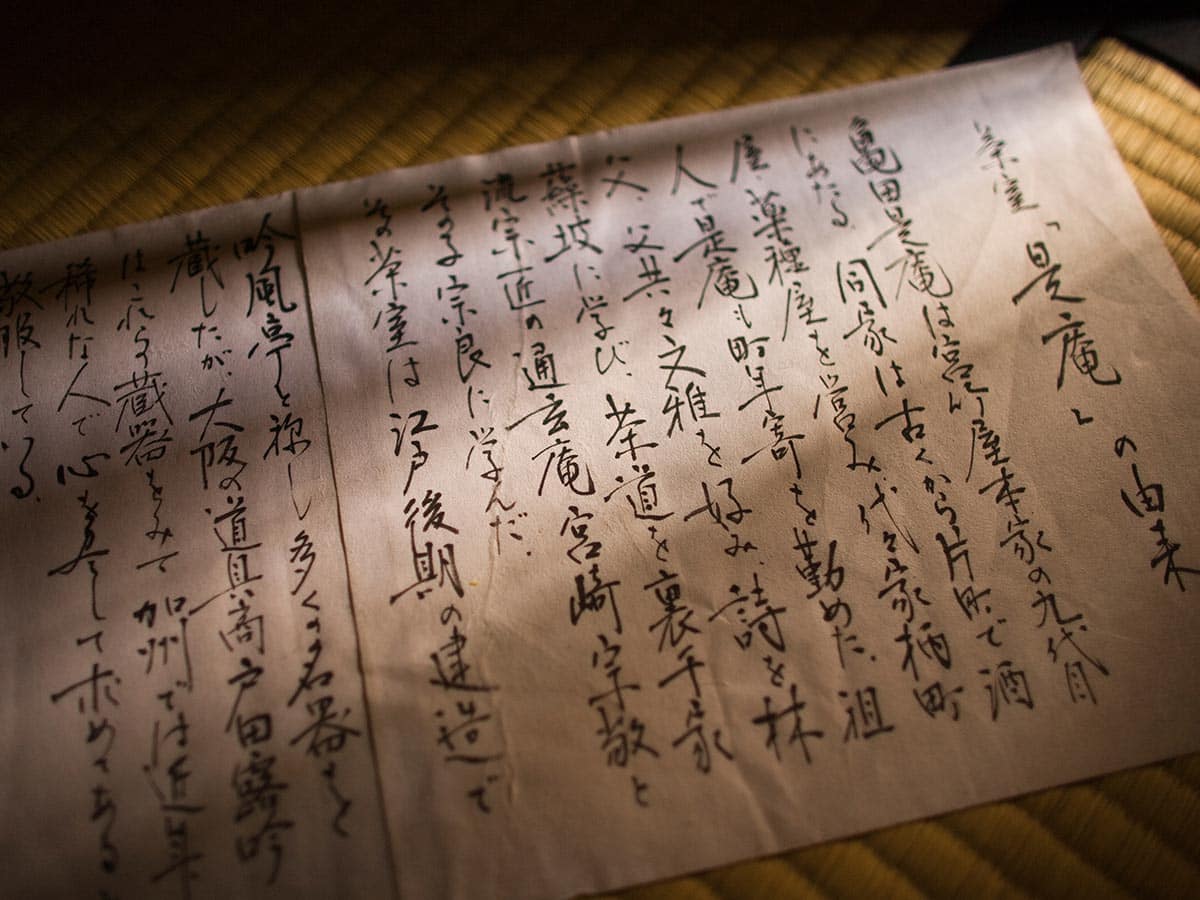 茶室「是庵」の由来
亀田是庵は宮竹屋本家の九代目
にあたる。同家は古くから片町で酒
屋、薬種屋を営み、代々家柄町
人で是庵も町年寄を勤めた。祖
父、父共々文雅を好み、詩を林
蘇坡に学び、茶道を裏千家
流宗近の通玄庵宮崎宗敬と
その子宗良に学んだ。
その茶室は江戸後期の建造で
吟風亭と称し多くの名器を
蔵したが、大阪の道具商戸田露吟
はこれらの蔵器をみて加州では近年
稀れな人で心を尽して求めてある
敬服している。